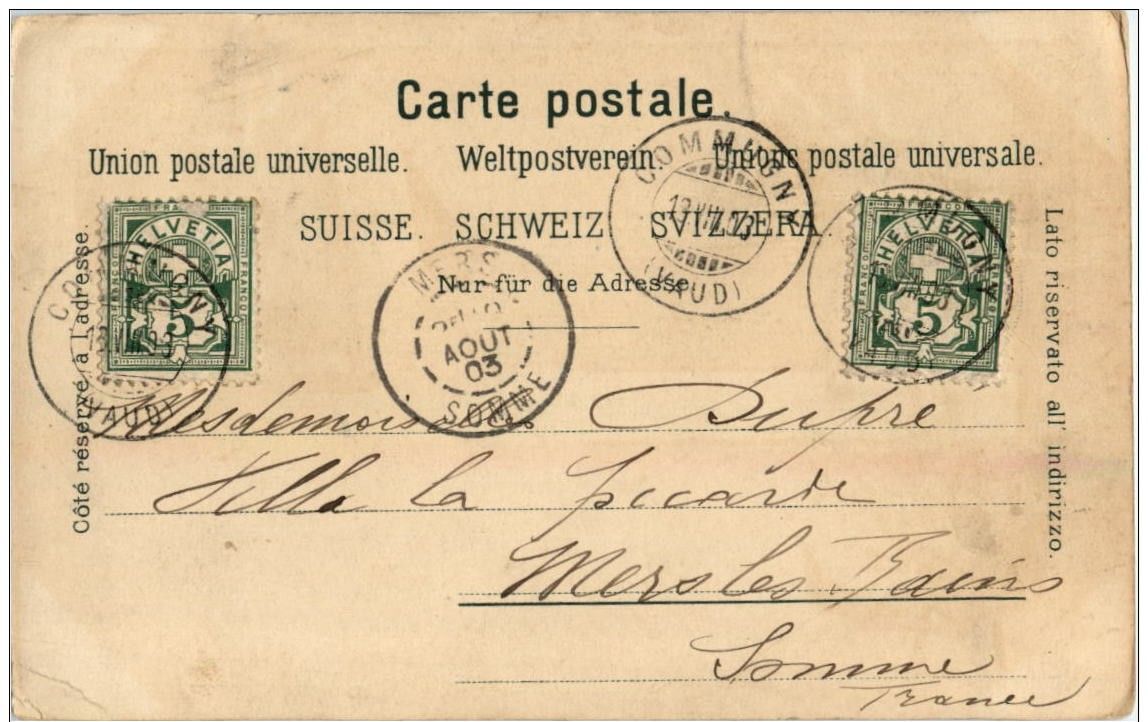 Carte postale.
Union postale universelle. Weltpostverein. Unione postale universale.
SUISSE. SCHWEIZ SVIZZERA.
Nur für die Adresse
Côté réservé à l'adresse.
Lato riservato all' indirizzo.
FRANCO
HELVETIA
5
FRANCO
HELVE
5
COMMUGNY
13 VIII 03
(VAUD)
UGNY
13 VIII 03
(VAUD)
UGNY
MERS
AOUT
03
SOMME
Mesdemois Dupré
Villa la picarde
Mers les Bains
Somme
France